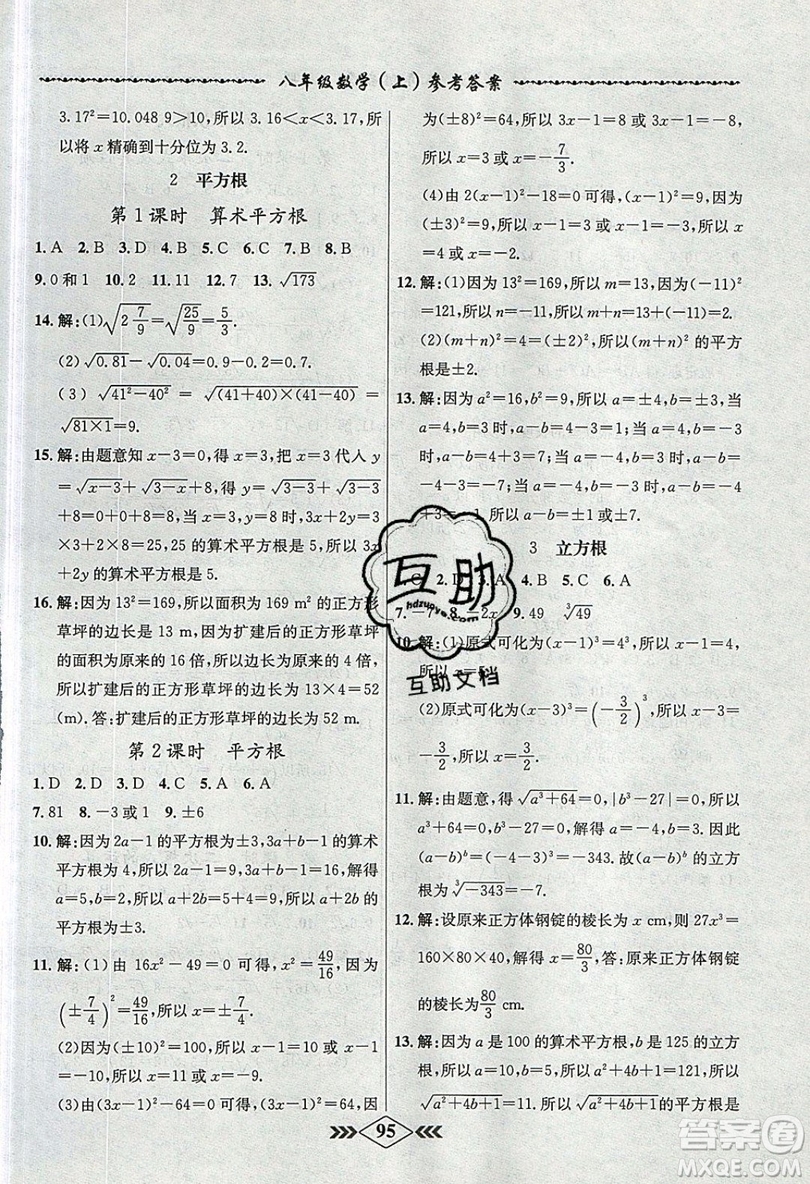 八年级数学(上)参考答案
3.17²=10.048 9>10,所以 3.16<x<3.17,所
以将 x 精确到十分位为 3.2.
2 平方根
第1课时 算术平方根
1. A 2. B 3. D 4. B 5. C 6. C 7. B 8. B
9. 0 和 1 10. 2 11. 11 12. 7 13. √173
14. 解:(1)√(2 7/9)=√(25/9)=5/3.
(2)√0.81-√0.04=0.9-0.2=0.7.
(3)√(41²-40²)=√((41+40)×(41-40))=
√(81×1)=9.
15. 解:由题意知 x-3=0,得 x=3,把 x=3 代人 y
=√(x-3)+√(3-x)+8,得 y=√(3-3)+√(3-3)
+8=0+0+8=8,当 x=3,y=8 时,3x+2y=3
×3+2×8=25,25 的算术平方根是 5. 所以 3x+
2y 的算术平方根是 5.
16. 解:因为 13²=169,所以面积为 169 m² 的正方形
草坪的边长是 13 m,因为扩建后的正方形草坪
的面积为原来的 16 倍,所以边长为原来的 4 倍,
所以扩建后的正方形草坪的边长为 13×4=52
(m). 答:扩建后的正方形草坪的边长为 52 m.
第2课时 平方根
1. D 2. D 3. D 4. C 5. A 6. A
7. 81 8. -3 或 1 9. ±6
10. 解:因为 2a-1 的平方根为±3,3a+b-1 的算术
平方根为 4,所以 2a-1=9,3a+b-1=16,解得
a=5,b=2,所以 a+2b=5+4=9,所以 a+2b 的
平方根为±3.
11. 解:(1)由 16x²-49=0 可得,x²=49/16,因为
(±7/4)²=49/16,所以 x=±7/4.
(2)因为(±9)²=81,所以 x-1=9 或 x-1=
-9,所以 x=10 或 x=-8.
(3)由(3x-1)²-64=0 可得,(3x-1)²=64,因
为(±8)²=64,所以 3x-1=8 或 3x-1=-8,
所以 x=3 或 x=-7/3.
(4)由 2(x-1)²-18=0 可得,(x-1)²=9,因为
(±3)²=9,所以 x-1=3 或 x-1=-3,所以 x
=4 或 x=-2.
12. 解:(1)因为 13²=169,所以 m=13,因为(-11)²
=121,所以 n=-11,所以 m+n=13-11=2.
(2)(m+n)²=4=(±2)²,所以(m+n)²的平方
根是±2.
13. 解:因为 a²=16,b²=9,所以 a=±4,b=±3,当
a=4,b=3 时,a-b=4-3=1;当 a=4,b=-3
时,a-b=4+3=7;当 a=-4,b=3 时,a-b=
-4-3=-7;当 a=-4,b=-3 时,a-b=-4
+3=-1. 所以 a-b 的值为±1 或±7.
3 立方根
C 2. D 3. A 4. C 5. D 6. A
7. -7 8. -2x 9. 49 ∛49
10. 解:(1)原式可化为(x-1)³=1,所以 x-1=1,
所以 x=
(2)原式可化为(x-3)³=(-3/2)³,所以 x-3
=-3/2,所以 x=3/2.
11. 解:由题意,得√(a³+64)=0,|b³-27|=0,所以 a³
+64=0,b³-27=0,解得 a=-4,b=3,所以
(a-b)ᵇ=(-4-3)³=-343. 故(a-b)ᵇ 的立方
根为∛-343=-7.
12. 解:设原来正方体钢锭的棱长为 x cm,则 27x³=
160×80×40,所以 x=80/3,答:原来正方体钢锭
的棱长为80/3 cm.
13. 解:因为 a 是 100 的算术平方根,b 是 125 的立方
根,所以 a=10,b=5. 所以 a²+4b+1=100+20
+1=121,所以√(a²+4b+1)=11,所以√(a²+4b+1)
95
互助
hdzuoye.com
互助文档
答案圈
MXQE.COM